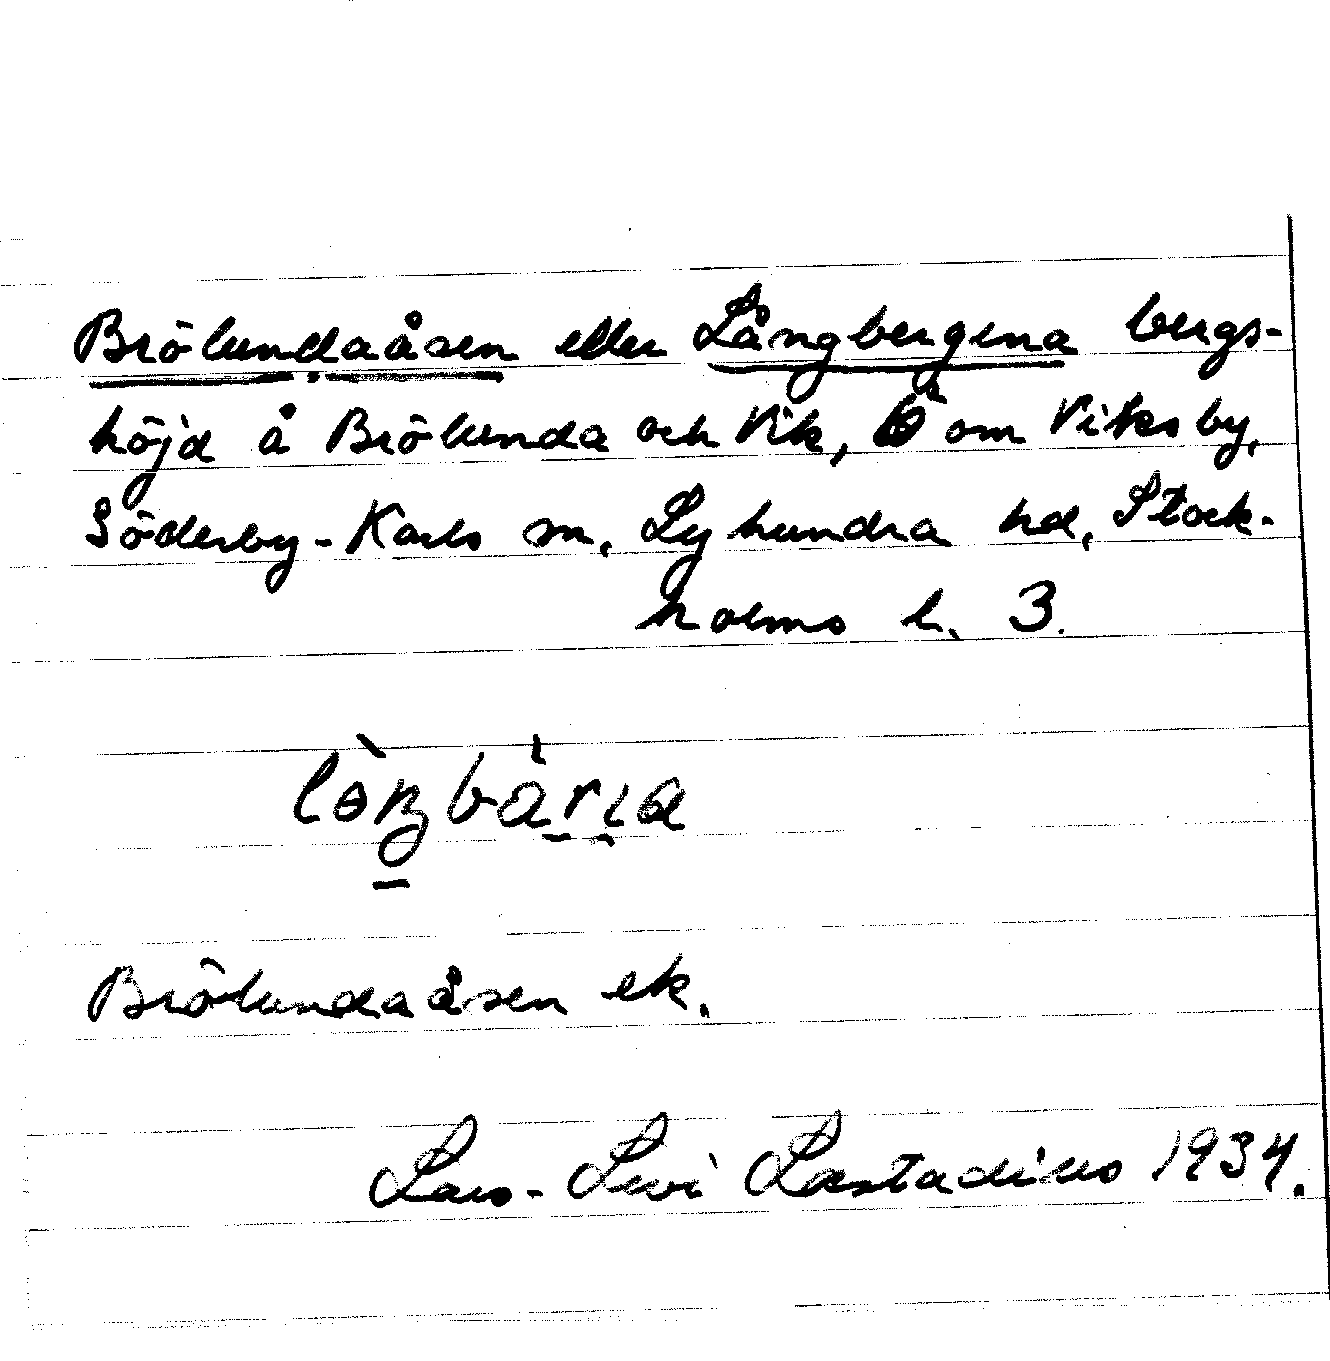 Brölundaåsen eller Långbergena bergs-
höjd å Brölunda och Vik, Ö om Viksby,
Söderby-Karls sn, Lyhundra hd, Stock-
holms l. 3.
Brölundaåsen ek.
Lars-Levi Læstadius 1934.